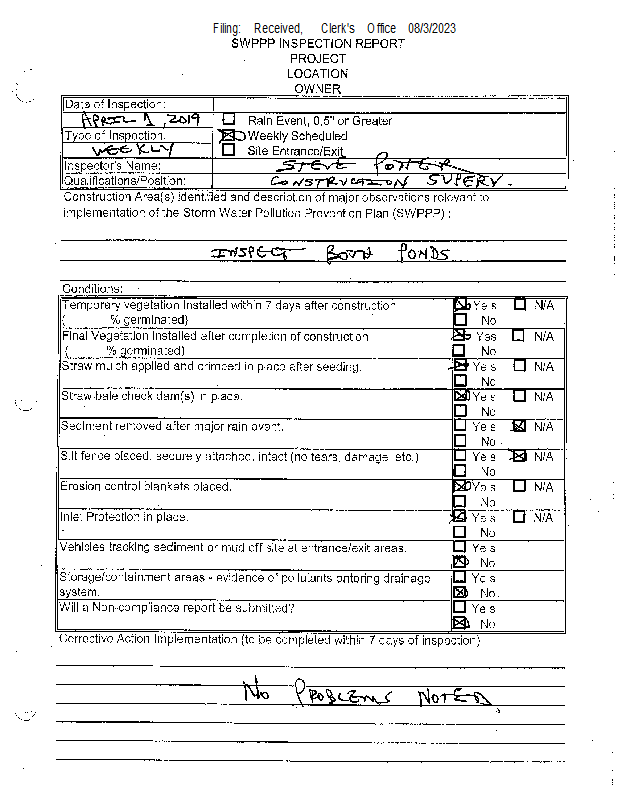 Filing: Received, Clerk's Office 08/3/2023
SWPPP INSPECTION REPORT
PROJECT
LOCATION
OWNER
Date of Inspection:
APRIL 1, 2019
☐ Rain Event, 0.5" or Greater
Type of Inspection:
☒ Weekly Scheduled
WEEKLY
☐ Site Entrance/Exit
Inspector's Name: STEVE POTTER
Qualifications/Position: CONSTRUCTION SUPERV.
Construction Area(s) identified and description of major observations relevant to
implementation of the Storm Water Pollution Prevention Plan (SWPPP) :
INSPECT BOTH PONDS
Conditions:
Temporary vegetation Installed within 7 days after construction ☒ Yes ☐ N/A
( % germinated) ☐ No
Final Vegetation Installed after completion of construction ☒ Yes ☐ N/A
( % germinated) ☐ No
Straw mulch applied and crimped in place after seeding. ☒ Yes ☐ N/A
☐ No
Straw bale check dam(s) in place. ☒ Yes ☐ N/A
☐ No
Sediment removed after major rain event. ☐ Yes ☒ N/A
☐ No
Silt fence placed, securely attached, intact (no tears, damage, etc.) ☐ Yes ☒ N/A
☐ No
Erosion control blankets placed. ☒ Yes ☐ N/A
☐ No
Inlet Protection in place. ☒ Yes ☐ N/A
☐ No
Vehicles tracking sediment or mud off site at entrance/exit areas. ☐ Yes
☒ No
Storage/containment areas - evidence of pollutants entering drainage ☐ Yes
system. ☒ No
Will a Non-compliance report be submitted? ☐ Yes
☒ No
Corrective Action Implementation (to be completed within 7 days of inspection)
NO PROBLEMS NOTED